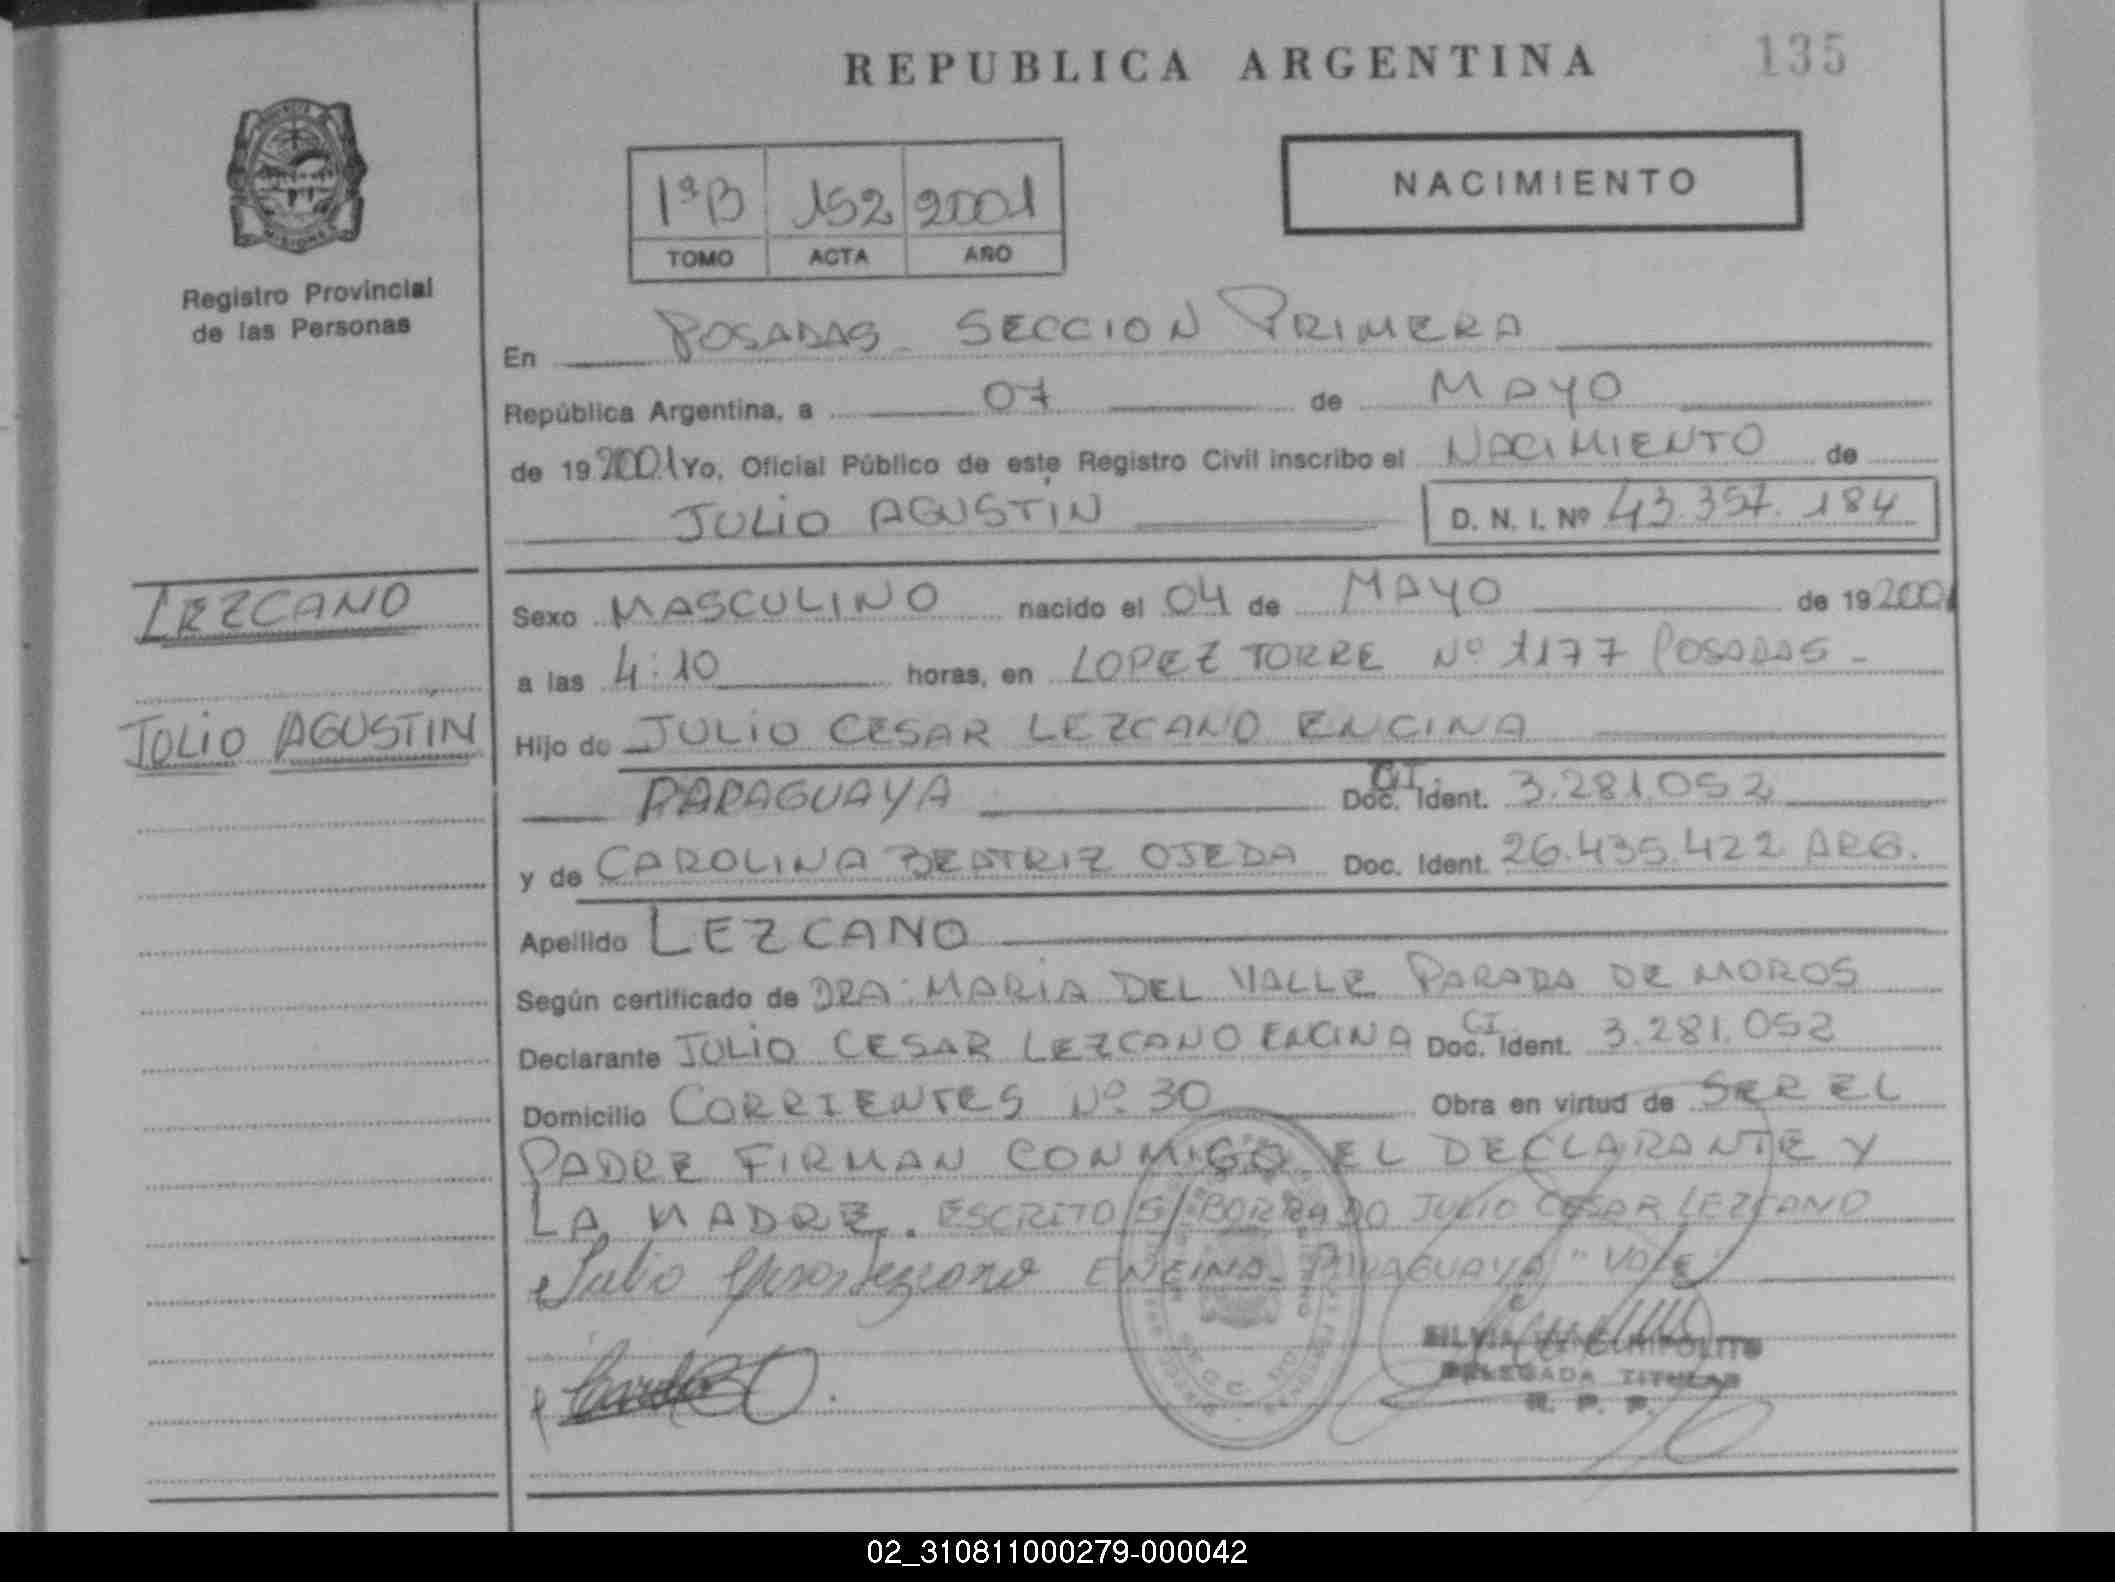 REPUBLICA ARGENTINA
135
1ºB 152 2001
TOMO ACTA AÑO
NACIMIENTO
MISIONES
Registro Provincial
de las Personas
En POSADAS - SECCION PRIMERA
República Argentina, a 07 de MAYO
de 19 2001 Yo, Oficial Público de este Registro Civil inscribo el NACIMIENTO de
JULIO AGUSTIN D. N. I. Nº 43.357.184
LEZCANO
JULIO AGUSTIN
Sexo MASCULINO nacido el 04 de MAYO de 19 2001
a las 4:10 horas, en LOPEZ TORRE Nº 1177 POSADAS -
Hijo de JULIO CESAR LEZCANO ENCINA
PARAGUAYA Doc. CI Ident. 3.281.052
y de CAROLINA BEATRIZ OJEDA Doc. Ident. 26.435.422 ARG.
Apellido LEZCANO
Según certificado de DRA. MARIA DEL VALLE PARADA DE MOROS
Declarante JULIO CESAR LEZCANO ENCINA Doc. CI Ident. 3.281.052
Domicilio CORRIENTES Nº 30 Obra en virtud de SER EL
PADRE FIRMAN CONMIGO EL DECLARANTE Y
LA MADRE. ESCRITO S/ BORRADO JULIO CESAR LEZCANO
ENCINA - PARAGUAYA "VALE"
SILVIA
DELEGADA TITULAR
R. P. P.
02_310811000279-000042